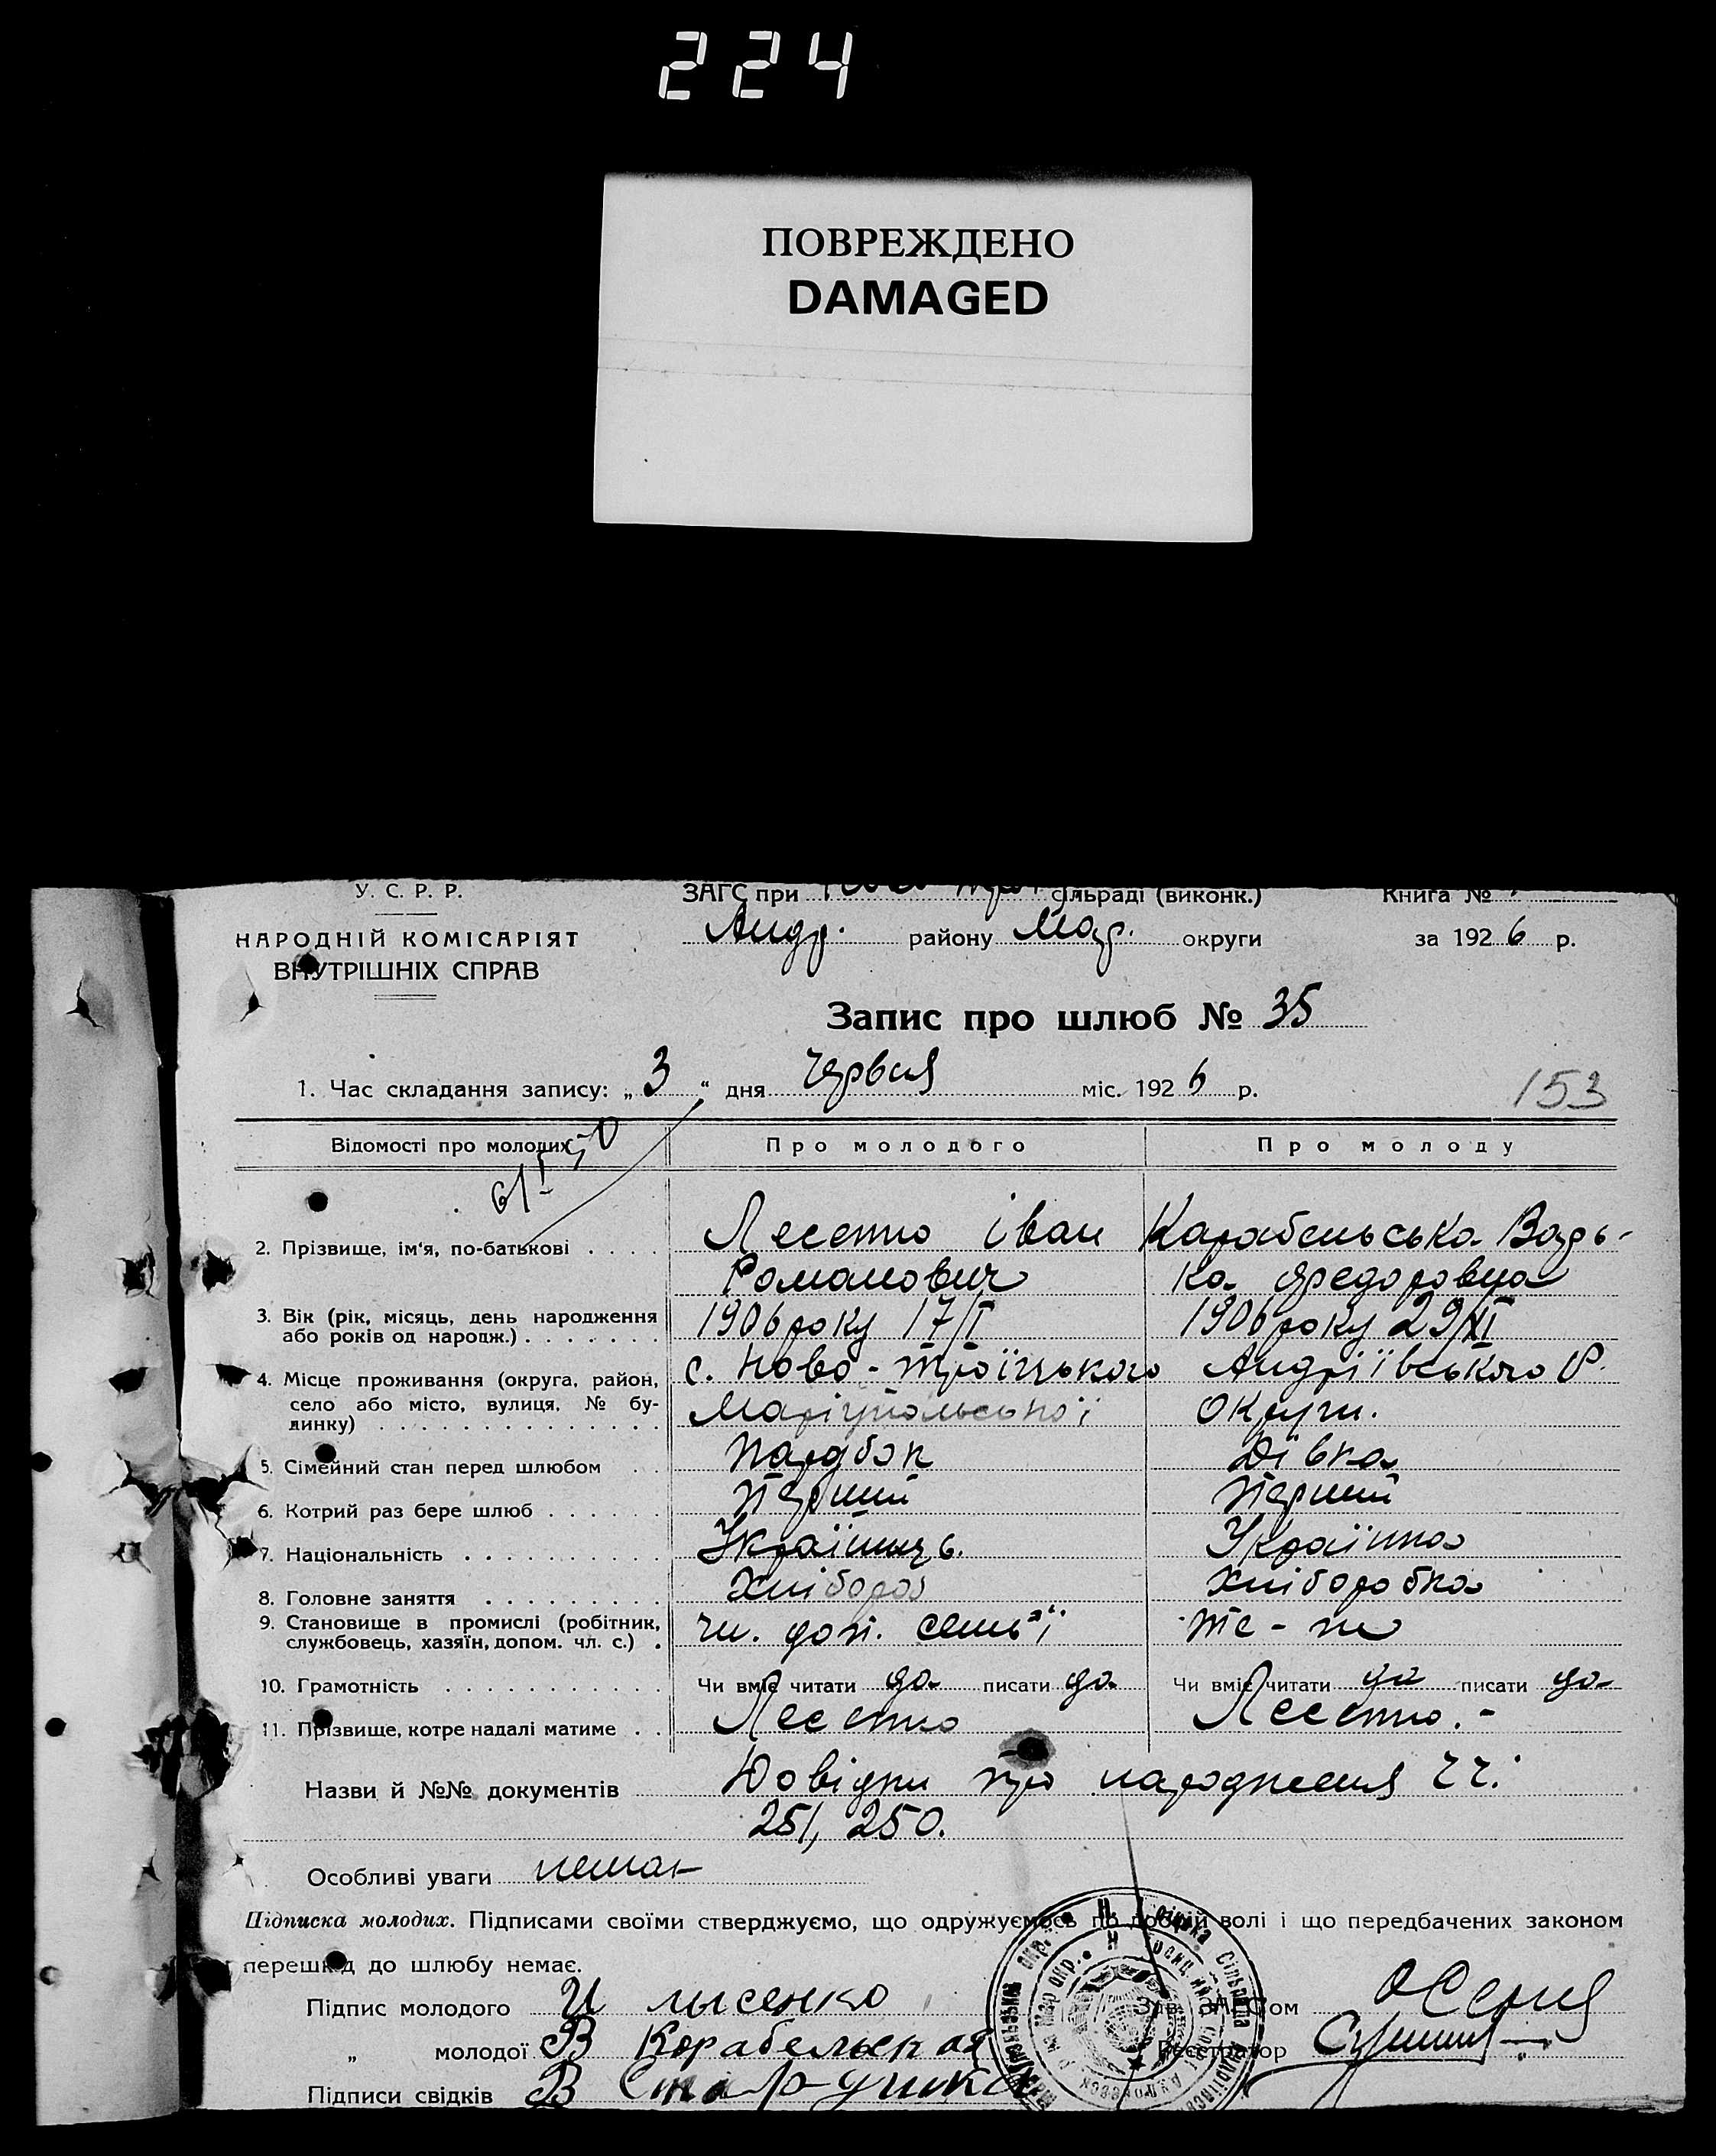 224
ПОВРЕЖДЕНО
DAMAGED
У. С. Р. Р.
ЗАГС при сільраді (виконк.) Книга №
НАРОДНІЙ КОМІСАРІЯТ
ВНУТРІШНІХ СПРАВ
Андр. району Мар. округи за 1926 р.
Запис про шлюб № 35
1. Час складання запису: „3“ дня Червня міс. 1926 р.
153
Відомості про молодих Про молодого Про молоду
2. Прізвище, ім‘я, по-батькові Лесенко Іван Карабельська Варь-
Романович ка Федоровна
3. Вік (рік, місяць, день народження або років од народж.) 1906 року 17/I 1906 року 29/XI
4. Місце проживання (округа, район, село або місто, вулиця, № будинку) с. Ново-Троїцького Андріївського Р.
Маріупольської Округи.
5. Сімейний стан перед шлюбом Парубок Дівка
6. Котрий раз бере шлюб Перший Перший
7. Національність Українець. Українка
8. Головне заняття Хлібороб Хліборобка
9. Становище в промислі (робітник, службовець, хазяїн, допом. чл. с.) чл. доп. семьї те-ж
10. Грамотність Чи вміє читати да писати да Чи вміє читати да писати да
11. Прізвище, котре надалі матиме Лесенко Лесенко.-
Назви й №№ документів Довідки про народження ч.ч.
251, 250.
Особливі уваги немає
Підписка молодих. Підписами своїми стверджуємо, що одружуємось по добрій волі і що передбачених законом
перешкод до шлюбу немає.
Підпис молодого И лысенко Зав. ЗАГС'ом
„ молодої В Корабельская Реєстратор
Підписи свідків В